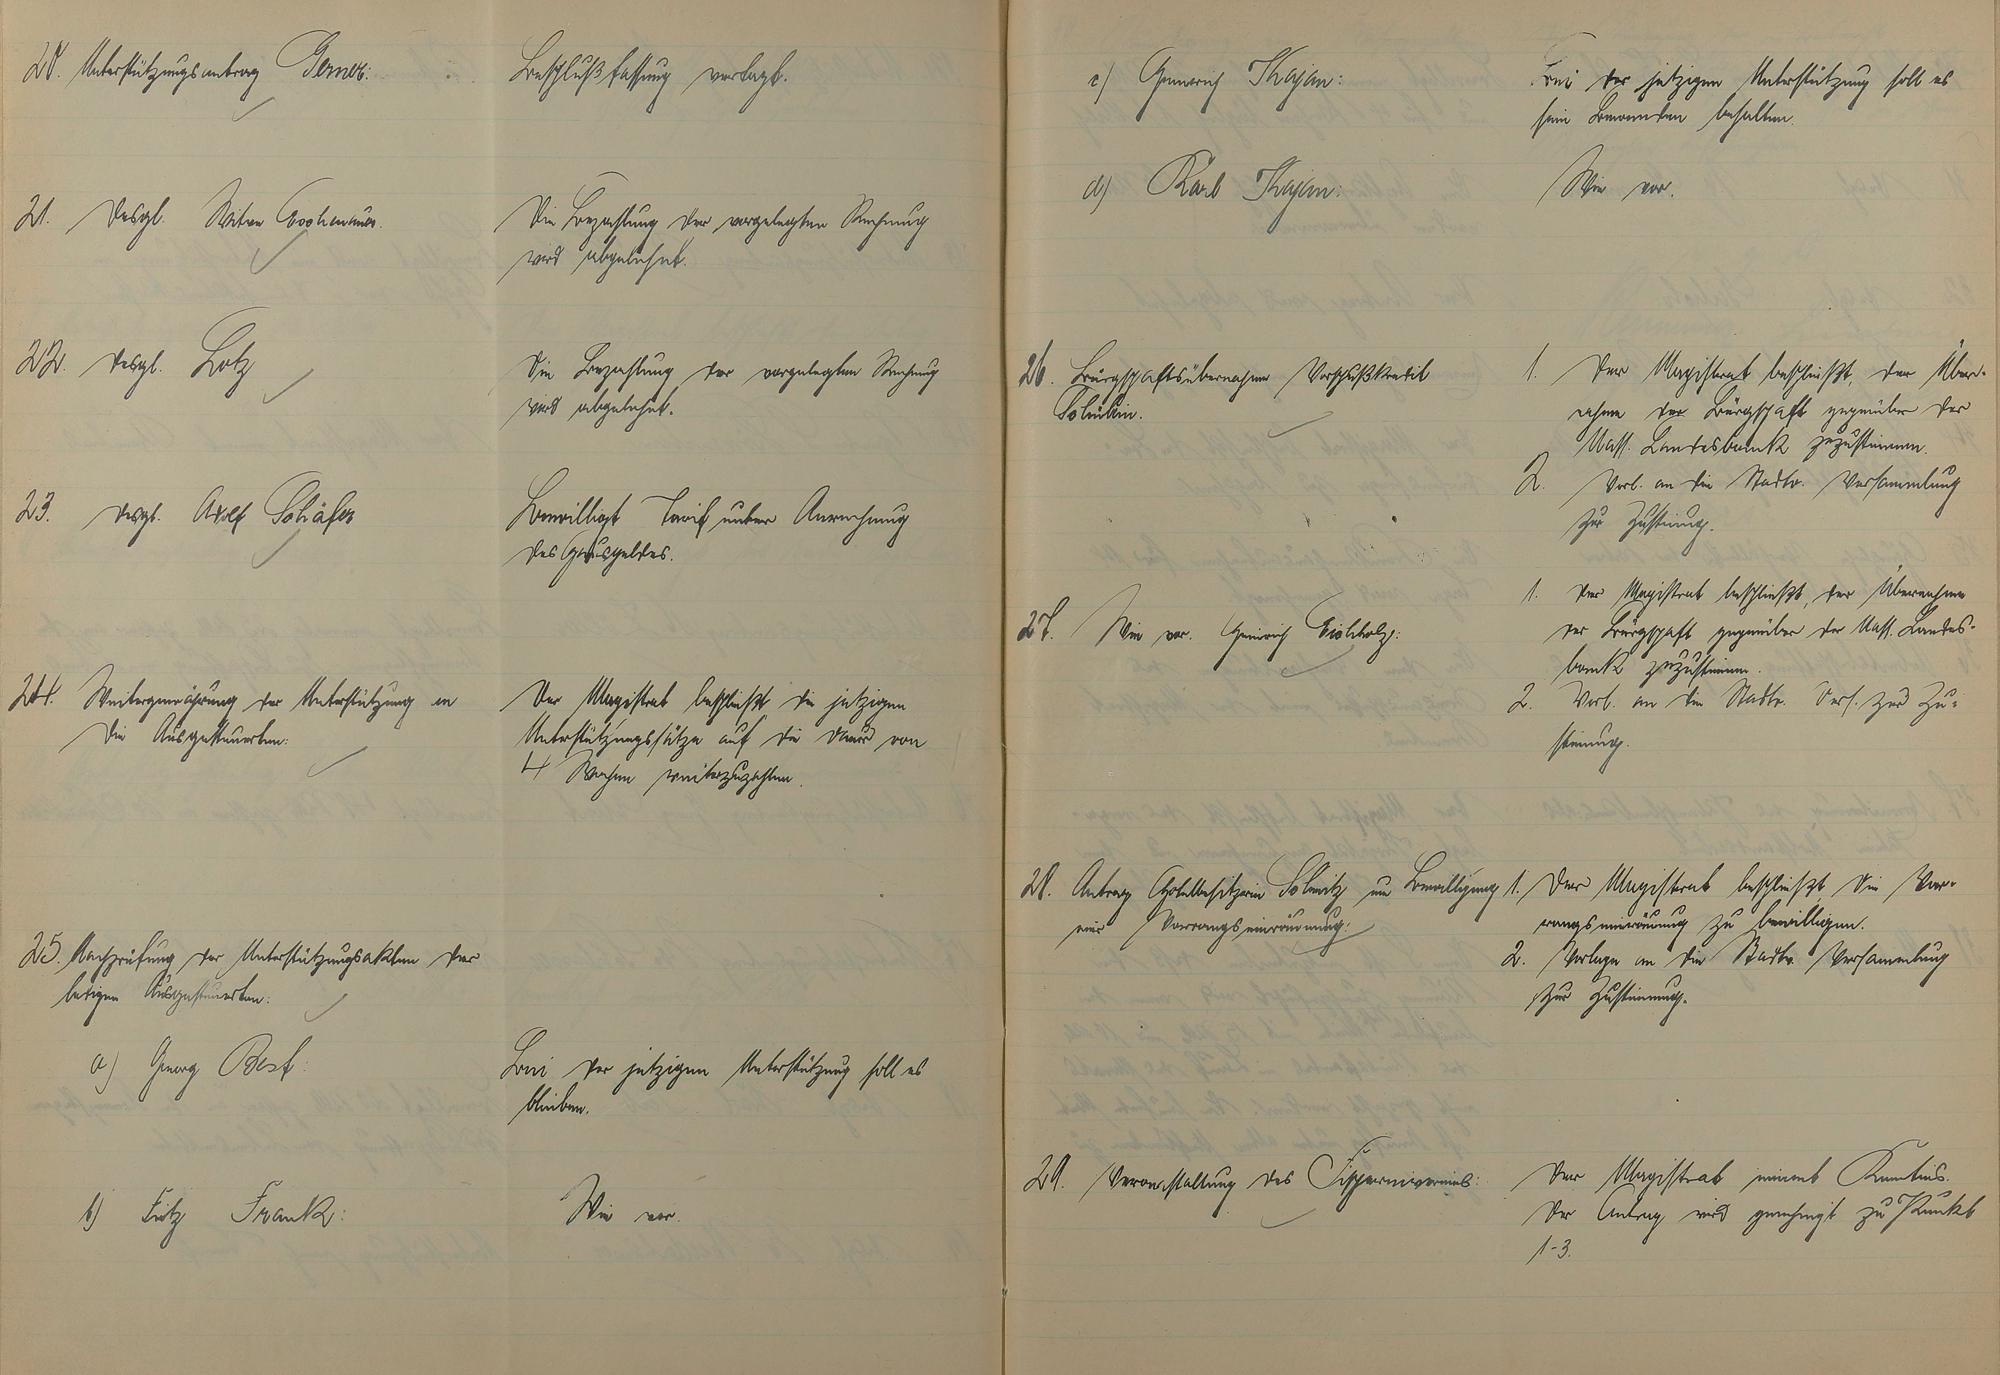 20. Unterstützungsantrag Gerner:
Beschlußfassung vertagt.
21. Desgl. Witwe
Die Bezahlung der vorgelegten Rechnung
wird abgelehnt.
22. Desgl. Lotz
Die Bezahlung der vorgelegten Rechnung
wird abgelehnt.
23. Desgl. Adolf Schäfer
Bewilligt Tarif unter Anrechnung
des Hausgeldes.
24. Weitergewährung der Unterstützung an
die Ausgesteuerten:
Der Magistrat beschließt die jetzigen
Unterstützungssätze auf die Dauer von
4 Wochen weiterzuzahlen.
25. Nachprüfung der Unterstützungsakten der
ledigen Ausgesteuerten:
a) Georg Best:
Bei der jetzigen Unterstützung soll es
bleiben.
b) Fritz Frank:
Wie vor.
c) Heinrich Thajan:
Bei der jetzigen Unterstützung soll es
sein Bewenden behalten.
d) Karl Thajan:
Wie vor.
26. Bürgschaftsübernahme Vorschußkredit
1. Der Magistrat beschließt, der Über-
nahme der Bürgschaft gegenüber der
Nass. Landesbank zuzustimmen.
2. Vorl. an die Stadtv. Versammlung
zur Zustimmg.
27. Wie vor. Heinrich Eichholz:
1. Der Magistrat beschließt, der Übernahme
der Bürgschaft gegenüber der Nass. Landes-
bank zuzustimmen.
2. Vorl. an die Stadtv. Vers. zur Zu-
stimmung.
28. Antrag Hotelbesitzerin um Bewilligung
einer Vorrangseinräumung:
1. Der Magistrat beschließt, die Vor-
rangseinräumung zu bewilligen.
2. Vorlage an die Stadtv. Versammlung
zur Zustimmung.
29. Veranstaltung des Fischereivereins:
Der Magistrat nimmt Kenntnis.
Der Antrag wird genehmigt zu Punkt
1-3.